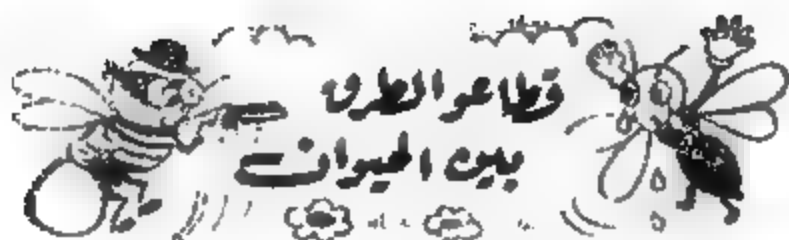 قطاعو الطرق
بين الحيوانات